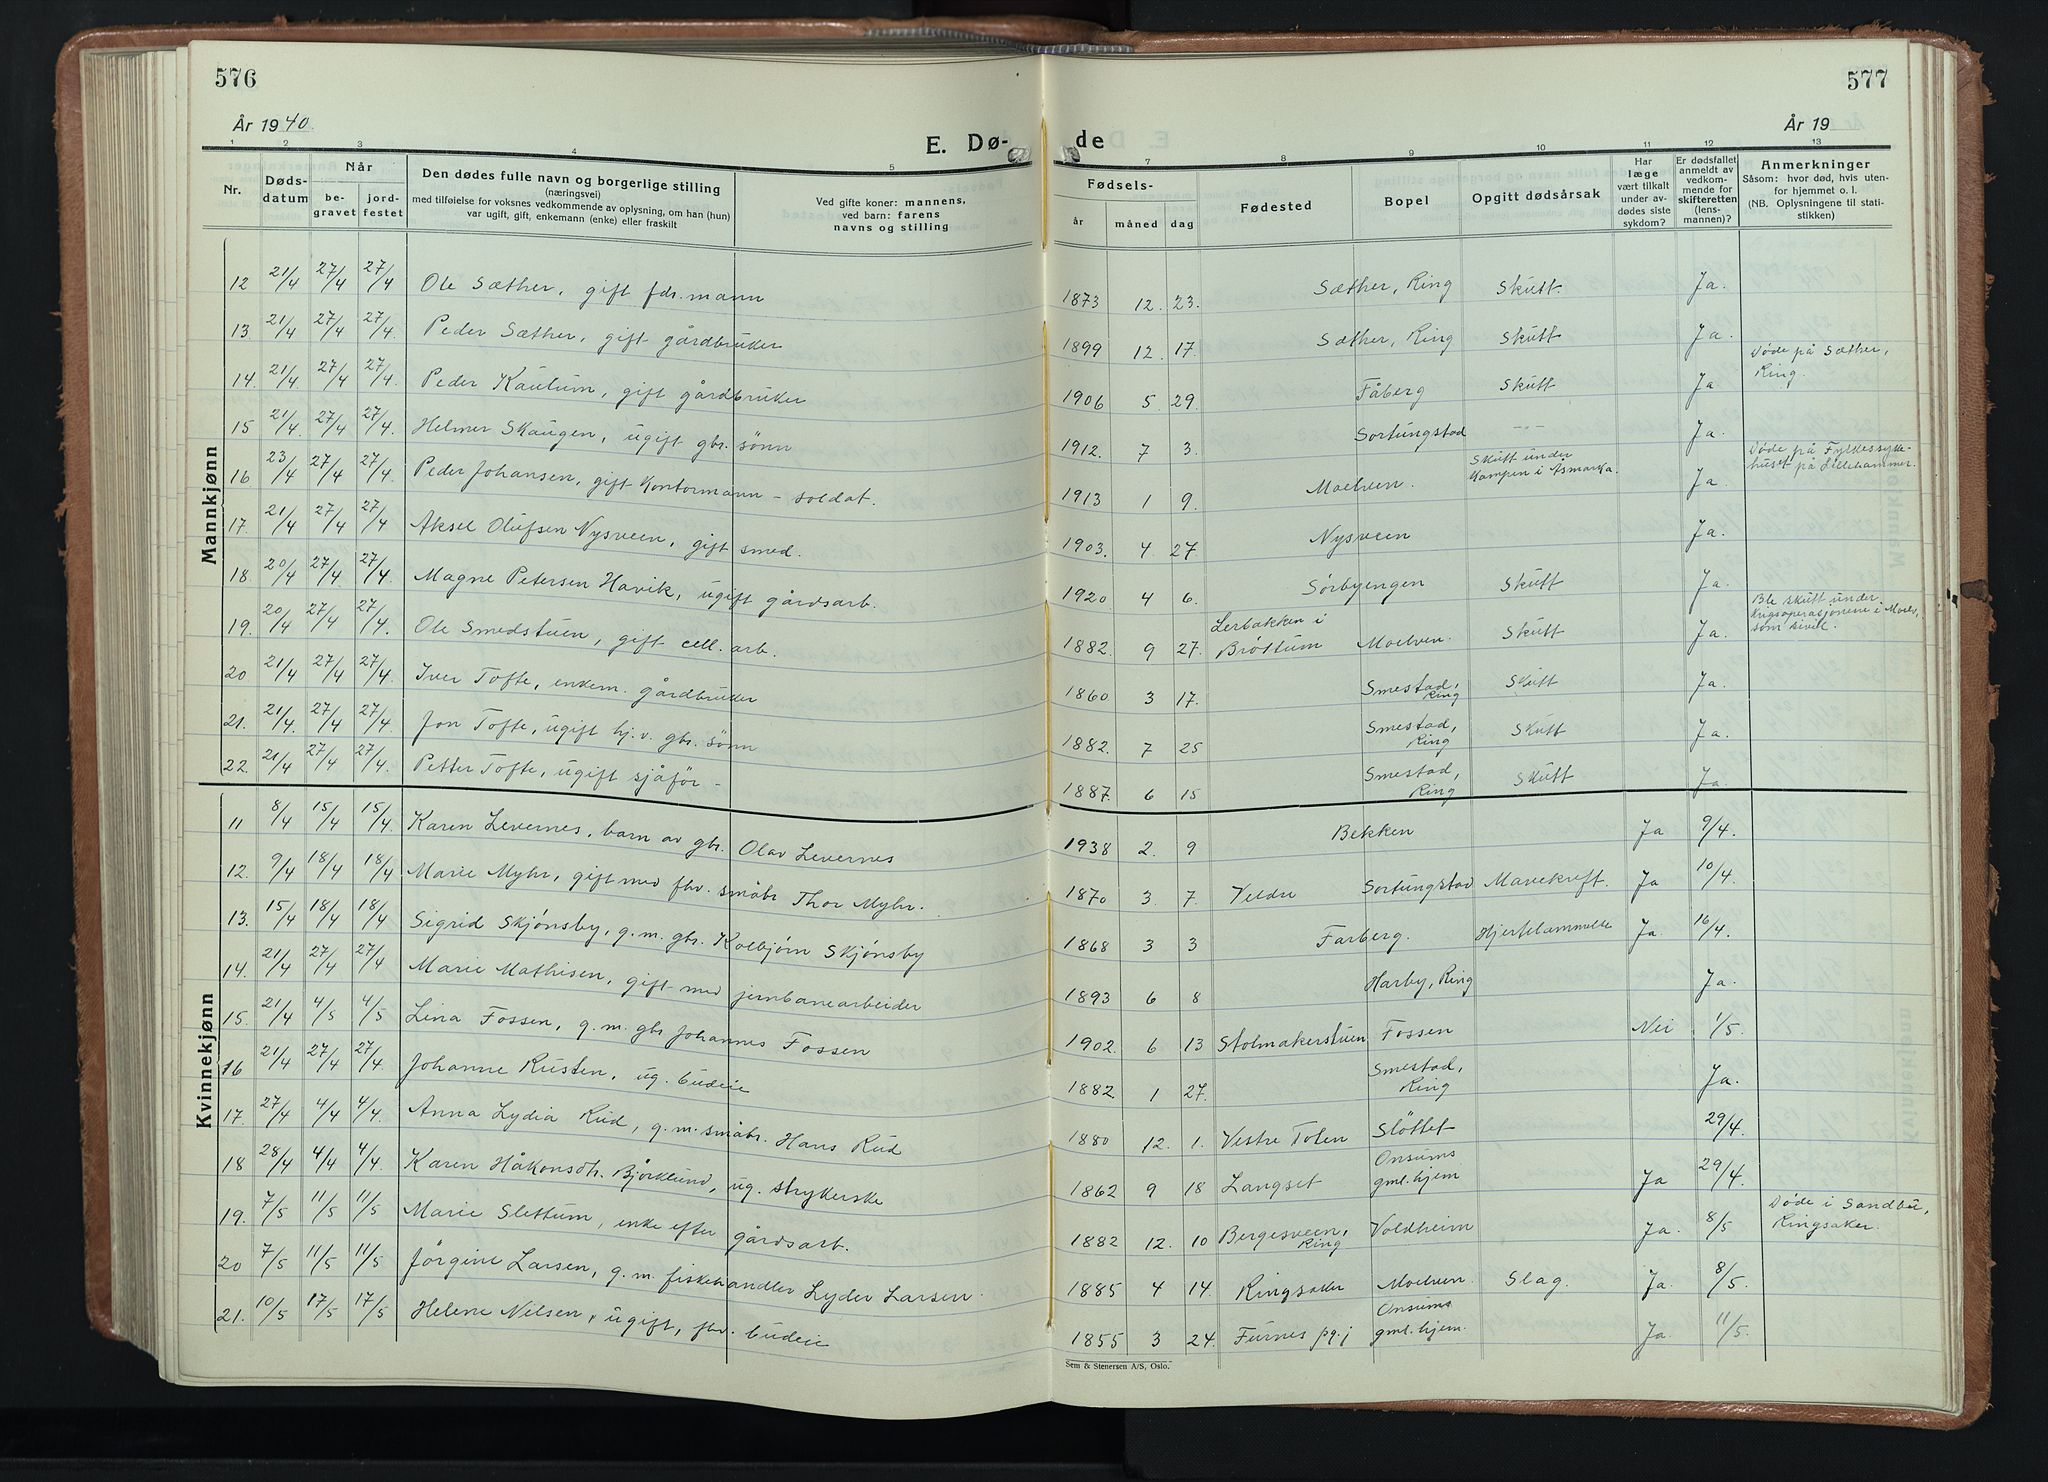 576
577
År 1940.
År 19
E. Dø-
de
1 2 3 4 5 7 8 9 10 11 12 13
Nr.
Døds-
datum
Når
be-
gravet
jord-
festet
Den dødes fulle navn og borgerlige stilling
(næringsvei)
med tilføielse for voksnes vedkommende av oplysning, om han (hun)
var ugift, gift, enkemann (enke) eller fraskilt
Ved gifte koner: mannens,
ved barn: farens
navns og stilling
Fødsels-
år måned dag
Fødested
Bopel
Opgitt dødsårsak
Har
læge
vært tilkalt
under av-
dødes siste
sykdom?
Er dødsfallet
anmeldt av
vedkom-
mende for
skifteretten
(lens-
mannen)?
Anmerkninger
Såsom: hvor død, hvis uten-
for hjemmet o. l.
(NB. Oplysningene til stati-
stikken)
Mannkjønn
12 21/4 27/4 27/4 Ole Sæther, gift fdr. mann 1873 12. 23. Sæther, Ring Skutt. Ja.
13. 21/4 27/4 27/4 Peder Sæther, gift gårdbruker 1899 12. 17. Sæther, Ring Skutt Ja.
14. 21/4 27/4 27/4. Peder Kaulum, gift gårdbruker 1906 5. 29. Fåberg Skutt Ja Døde på Sæther,
Ring.
15 21/4. 27/4 27/4. Helmer Skaugen, ugift gbr. sønn 1912. 7 3. Sortungstad --- Ja.
16 23/4 27/4 27/4. Peder Johansen, gift kontormann - soldat. 1913 1 9. Moelven. Skutt under
kampen i Åsmarka. Ja. Døde på Fylkessyke-
huset på Lillehammer.
17. 21/4 27/4 27/4 Aksel Olufsen Nysveen, gift smed. 1903. 4. 27 Nysveen Ja.
18. 20/4 27/4 27/4 Magne Petersen Havik, ugift gårdsarb. 1920 4 6. Sørbyengen Skutt Ja.
19. 20/4 27/4 27/4. Ole Smedstuen, gift cell. arb. 1882. 9 27. Lerbakken i
Brøttum Moelven. Skutt Ja. Ble skutt under
krigsoperasjonene i Moelv,
som sivil.
20 21/4 27/4 27/4. Iver Tofte, enkem. gårdbruker 1860 3 17. Smestad,
Ring Skutt Ja.
21. 21/4. 27/4 27/4. Jon Tofte, ugift hj. v. gbr. sønn 1882. 7 25 Smestad,
Ring Skutt Ja.
22. 21/4 27/4 27/4. Petter Tofte, ugift sjåfør - 1887. 6 15 Smestad,
Ring Skutt Ja.
Kvinnekjønn
11 8/4 15/4 15/4. Karen Levernes, barn av gbr. Olav Levernes 1938 2. 9 Bekken Ja 9/4.
12. 9/4 18/4 18/4 Marie Myhr, gift med fhv. småbr Thor Myhr. 1870 3. 7. Veldre Sortungstad Mavekreft. Ja 10/4.
13. 15/4 18/4 18/4 Sigrid Skjønsby, g. m. gbr. Kolbjørn Skjønsby 1868 3 3 Farberg. Hjertelammelse Ja. 16/4.
14. 21/4 27/4 27/4 Marie Mathisen, gift med jernbanearbeider 1893 6 8 Harby, Ring Ja.
15. 21/4 4/5 4/5 Lina Fossen, g. m. gbr Johannes Fossen 1902. 6 13 Stolmakerstuen Fossen Nei 1/5.
16 21/4 27/4 27/4. Johanne Rusten, ug. budeie 1882. 1 27. Smestad,
Ring Ja.
17. 27/4 4/4 4/4. Anna Lydia Rud, g. m. småbr. Hans Rud 1880 12. 1. Vestre Toten Sløttet 29/4.
18 28/4 4/4 4/4. Karen Håkonsdtr. Bjørklund, ug. strykerske 1862 9 18 Langset Onsums
gml.hjem Ja 29/4.
19. 7/5 11/5 11/5 Marie Slettum, enke efter gårdsarb. 1882 12. 10 Bergesveen,
Ring Voldheim Ja. 8/5 Døde i Sandbu,
Ringsaker.
20 7/5 11/5 11/5 Jørgine Larsen, g. m. fiskehandler Lyder Larsen. 1885 4 14. Ringsaker Moelven. Slag. Ja. 8/5.
21. 10/5 17/5 17/5 Helene Nilsen, ugift, fhv. budeie 1855 3 24. Furnes pg.j Onsums
gml.hjem. Ja. 11/5.
Sem & Stenersen A/S, Oslo.